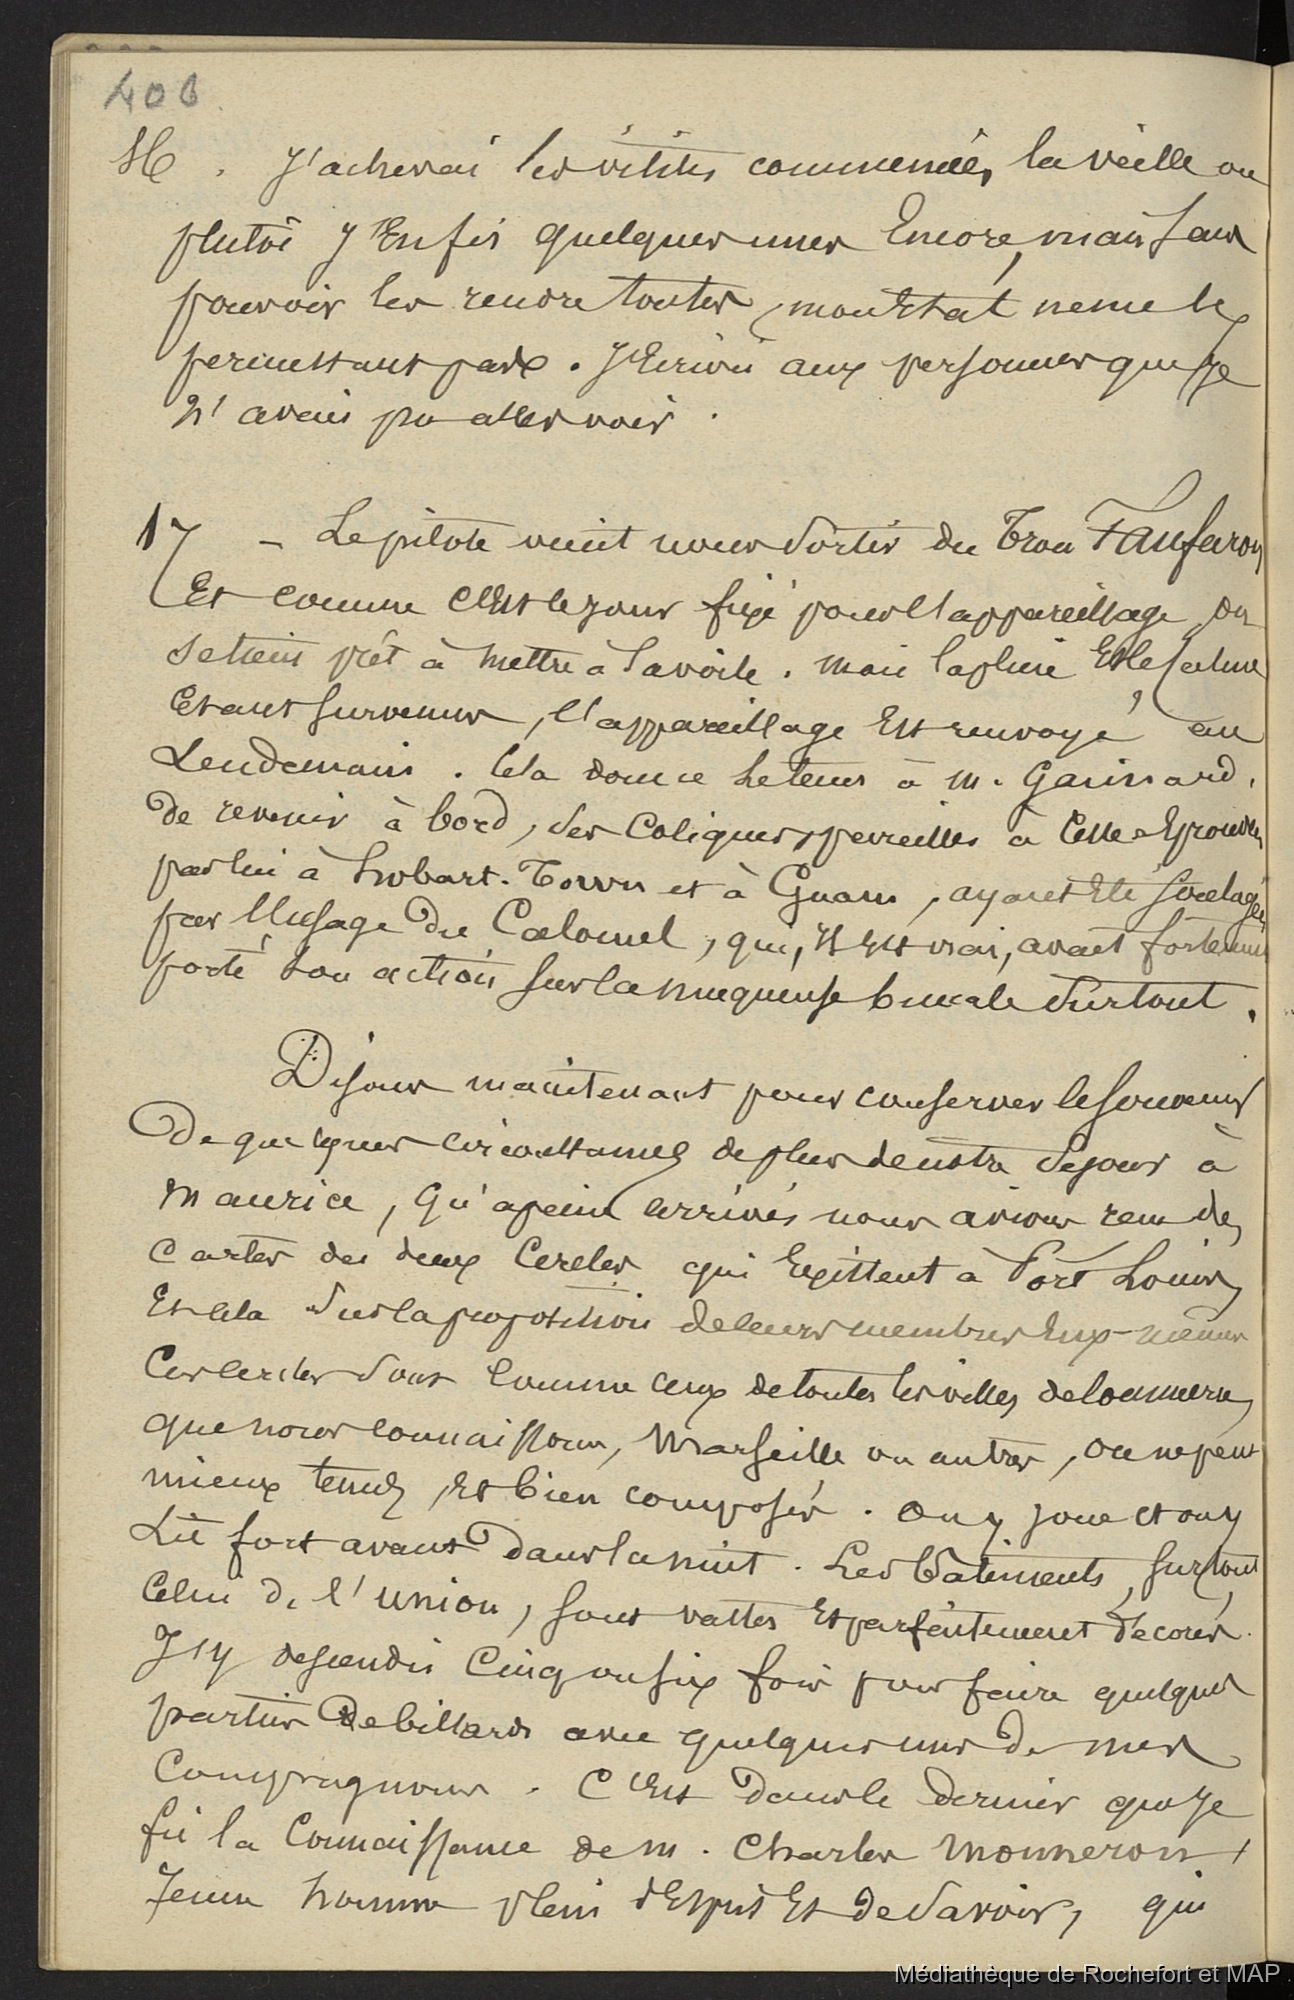 406
16. J'achevai les visites commencées la veille ou
plutôt j'En fis quelques unes Encore, mais sans
pouvoir les rendre toutes, mon Etat ne me le
permettant pas. J'Ecrivis aux personnes que je
n'avais pu aller voir.
17 - Le pilote vient nous sortir du Trou Fanfaron
Et comme c'Est le jour fixé pour l'appareillage on
se tient prêt à mettre à la voile. Mais la pluie Et le calme
Etant survenus, l'appareillage Est renvoyé au
Lendemain. Cela donne le tems à M. Gaimard,
de revenir à bord, ses Coliques, pareilles à Celles Eprouvées
par lui à hobart-Town et à Guam, ayant Eté soulagées
par l'Usage du Calomel, qui, il Est vrai, avait fortement
porté son action sur la muqueuse buccale surtout.
Disons maintenant pour conserver le souvenir
De quelques circonstances de plus de notre sejour à
Maurice, qu'à peine arrivés nous avions reçu des
Cartes des deux Cercles qui Existent à Port Louis,
Et cela sur la proposition de leurs membres Eux-mêmes
Ces cercles sont comme ceux de toutes les villes de commerce
que nous connaissons, Marseille ou autres, on ne peut
mieux tenus, Et bien composés. On y joue et on y
Lit fort avant Dans la nuit. Les Bâtiments, surtout
Celui de l'Union, sont vastes Et parfaitement décorés.
J'y descendis Cinq ou six fois pour faire quelques
parties de billards avec quelques uns de mes
Compagnons. C'Est Dans le dernier que je
fis la Connaissance de M. Charles Monneron,
Jeune homme plein d'Esprit Et de savoir, qui
Médiathèque de Rochefort et MAP